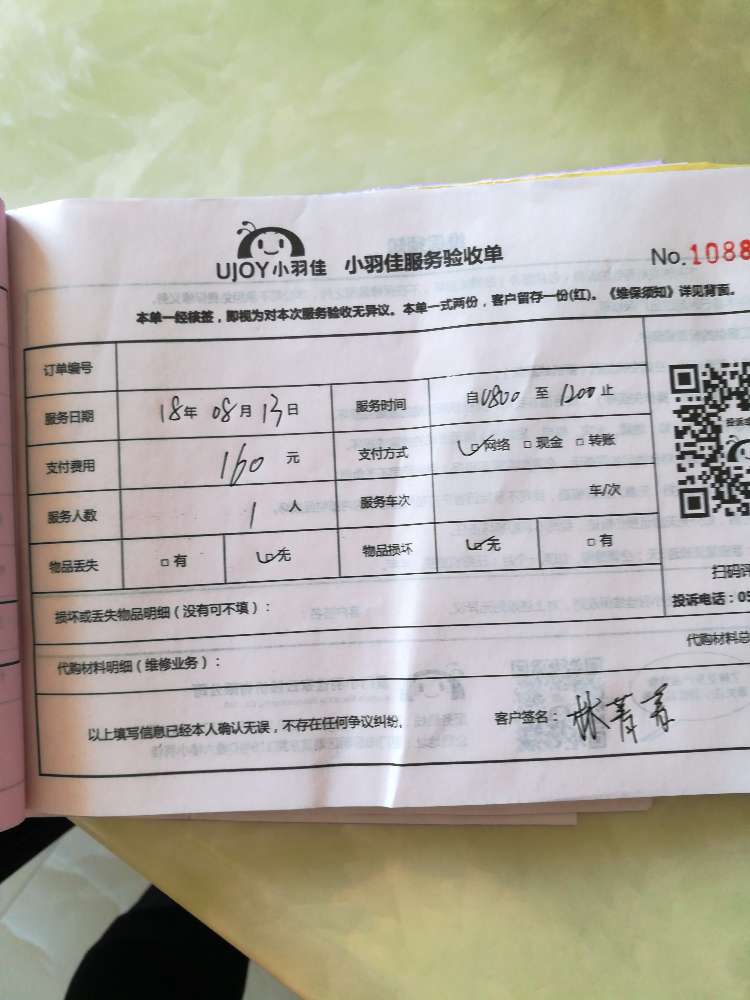 UJOY小羽佳 小羽佳服务验收单 No.1088
本单一经核签，即视为对本次服务验收无异议。本单一式两份，客户留存一份(红)。《维保须知》详见背面。
订单编号
服务日期 18年 08月 13日 服务时间 自0800 至 1200止
支付费用 160 元 支付方式 ☑网络 □现金 □转账
服务人数 1 人 服务车次 车/次
物品丢失 □有 ☑无 物品损坏 ☑无 □有
扫码评
损坏或丢失物品明细（没有可不填）： 投诉电话：05
代购材料明细（维修业务）： 代购材料总
以上填写信息已经本人确认无误，不存在任何争议纠纷。 客户签名：林菁菁